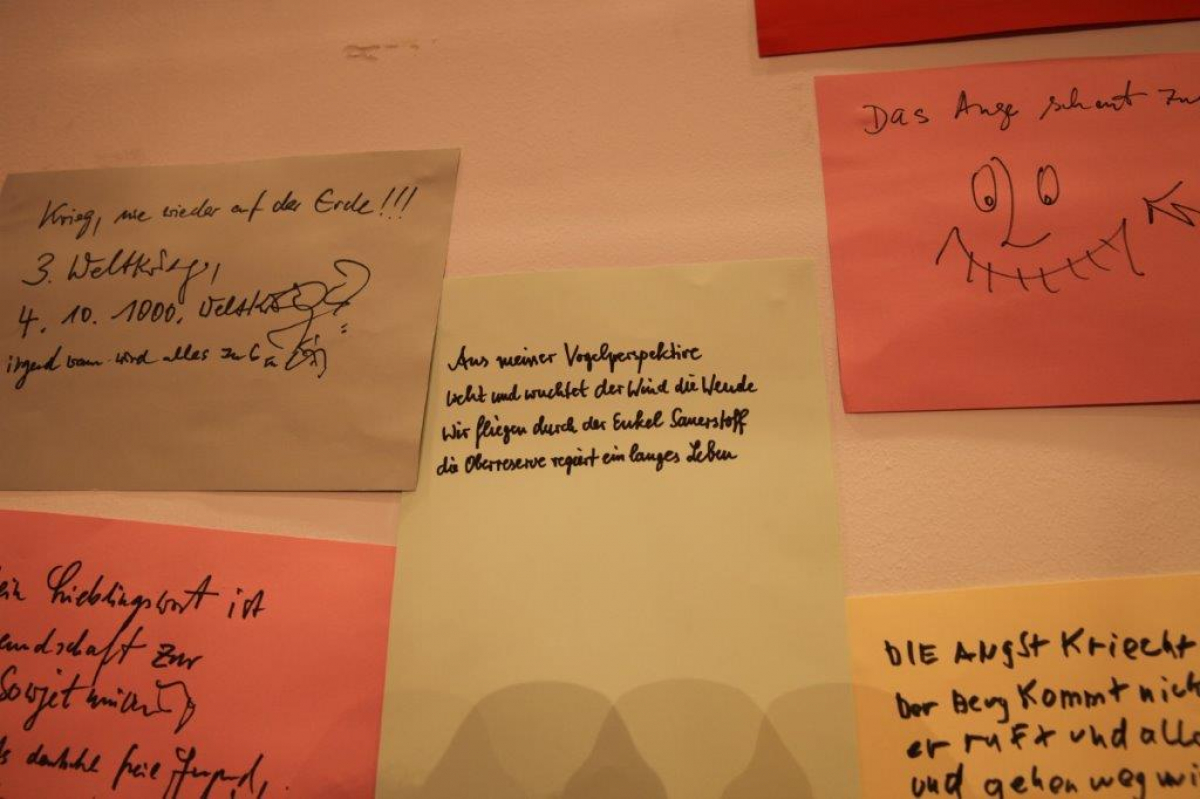 Das Auge schaut zu
Krieg, nie wieder auf der Erde!!!
3. Weltkrieg,
4. 10. 1000.
irgendwann wird alles zu
Aus meiner Vogelperspektive
weht und wuchtet der Wind die Wende
wir fliegen durch der Enkel Sauerstoff
die Oberreserve regiert ein langes Leben
ein Lieblingswort ist
eundschaft zur
Sowjetunion
s deutsche freie Jugend,
DIE ANgSt KRiecht
Der Berg Kommt nich
er ruFt und alle
und gehen weg wi